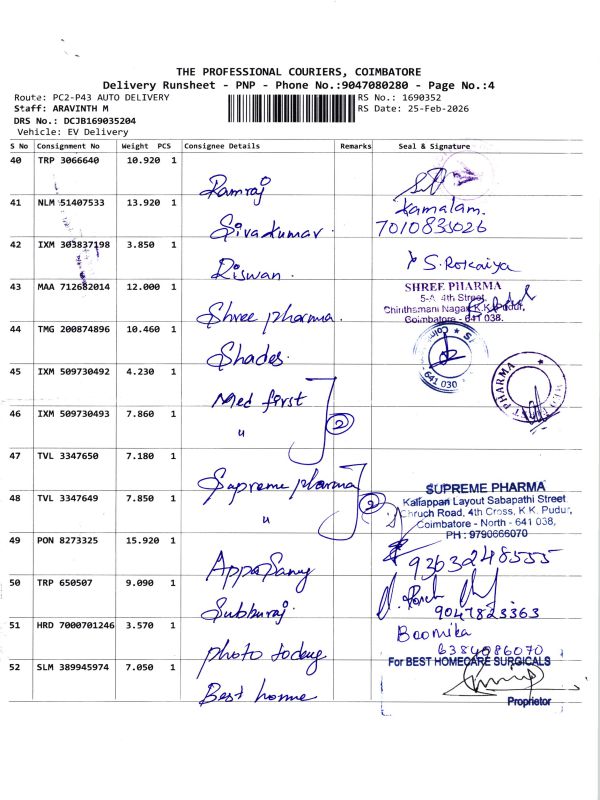 THE PROFESSIONAL COURIERS, COIMBATORE
Delivery Runsheet - PNP - Phone No.:9047080280 - Page No.:4
Route: PC2-P43 AUTO DELIVERY RS No.: 1690352
Staff: ARAVINTH M RS Date: 25-Feb-2026
DRS No.: DCJB169035204
Vehicle: EV Delivery
S No Consignment No Weight PCS Consignee Details Remarks Seal & Signature
40 TRP 3066640 10.920 1
Ramraj
41 NLM 51407533 13.920 1 Kamalam.
Sivakumar. 7010835026
42 IXM 303837198 3.850 1
Riswan. S. Rokaiya
43 MAA 712682014 12.000 1 SHREE PHARMA
5-A, 4th Street,
Chinthamani Nagar, K.K. Pudur,
Shree pharma. Coimbatore - 641 038.
44 TMG 200874896 10.460 1
Shades. 641 030
45 IXM 509730492 4.230 1 PHARMA
Med first
46 IXM 509730493 7.860 1
" 2
47 TVL 3347650 7.180 1
Supreme pharma SUPREME PHARMA
48 TVL 3347649 7.850 1 Kaliappan Layout Sabapathi Street
" 2 Chruch Road, 4th Cross, K.K. Pudur,
Coimbatore - North - 641 038,
PH : 9790666070
49 PON 8273325 15.920 1
AppaSamy 9363248555
50 TRP 650507 9.090 1
Subburaj. 9047823363
51 HRD 7000701246 3.570 1 Boomika
photo today 6384086070
52 SLM 389945974 7.050 1 For BEST HOMECARE SURGICALS
Best home
Proprietor